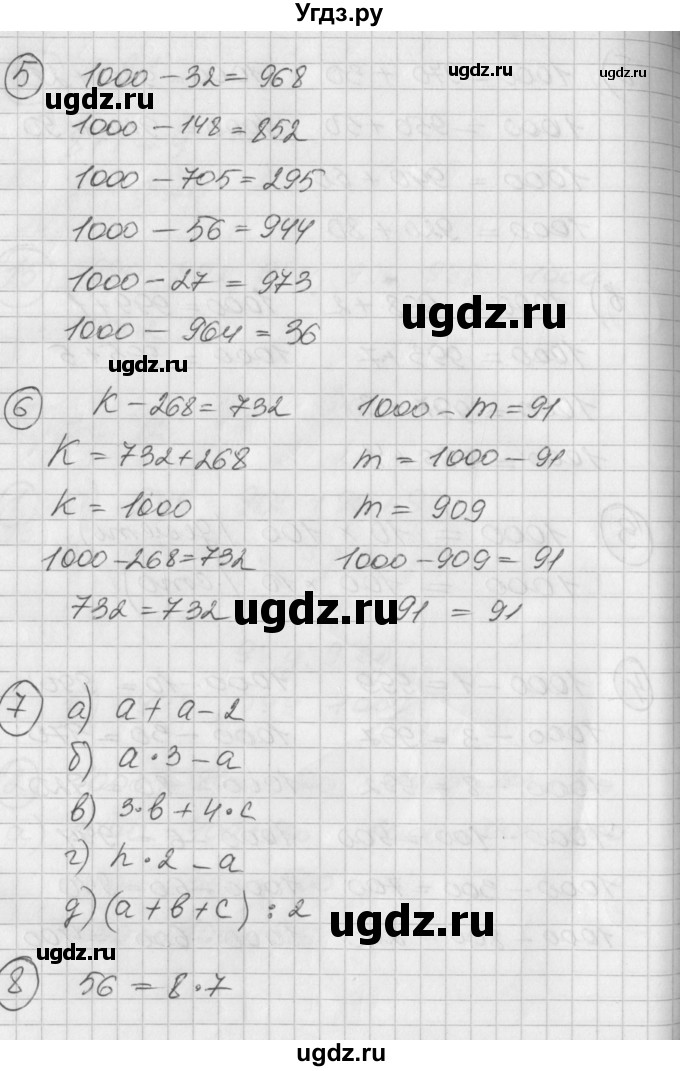 Угдз.ру
5 1000 - 32 = 968
ugdz.ru ugdz.ru ugdz.ru
1000 - 148 = 852
1000 - 705 = 295
1000 - 56 = 944
1000 - 27 = 973
ugdz.ru
1000 - 964 = 36
ugdz.ru
6 К - 268 = 732 1000 - m = 91
К = 732 + 268 m = 1000 - 91
К = 1000 m = 909
1000 - 268 = 732 1000 - 909 = 91
732 = 732 ugdz.ru 91 = 91
7 а) а + а - 2
б) а · 3 - а
в) 3 · в + 4 · с
г) n · 2 - а
д) (а + в + с) : 2
ugdz.ru
ugdz.ru
8 56 = 8 · 7
ugdz.ru